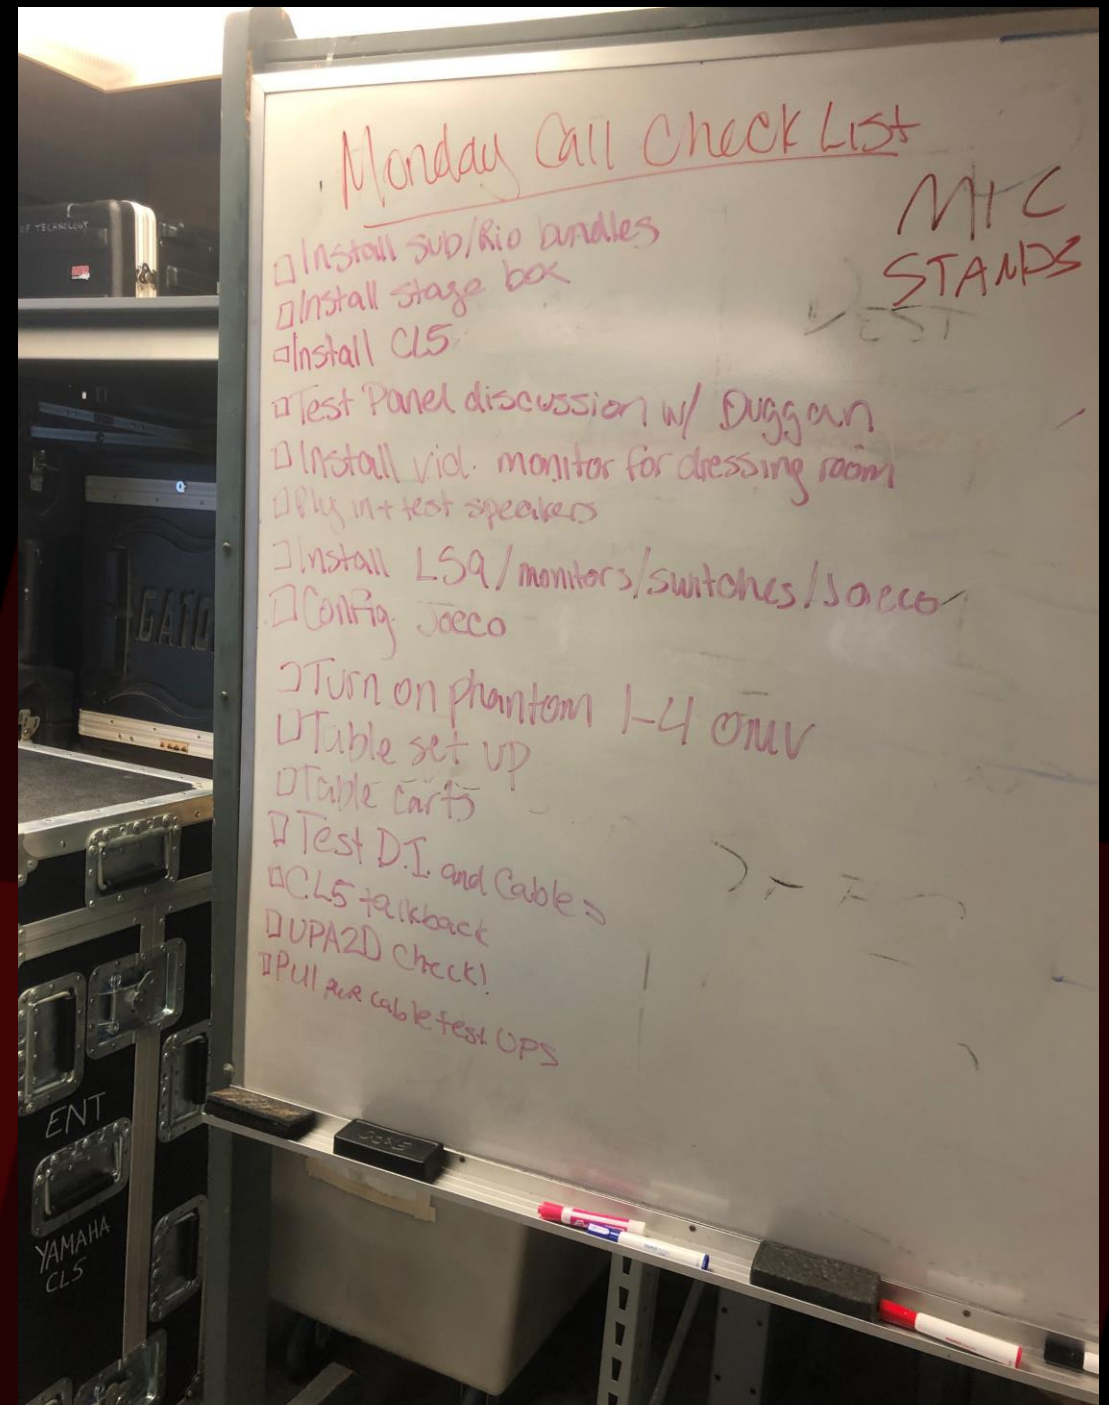 Monday Call Check List
MIC
STANDS
Install Sub/Rio bundles
Install stage box
Install CL5
Test Panel discussion w/ Duggan
Install vid. monitor for dressing room
Plug in + test speakers
Install LS9/monitors/switches/Joeco
Config. Joeco
Turn on phantom 1-4
Table set up
Table carts
Test D.I. and Cables
CL5 talkback
UPA2D check!
Pull cable test UPS
OF TECHNOLOGY
GATO
ENT
YAMAHA
CL5